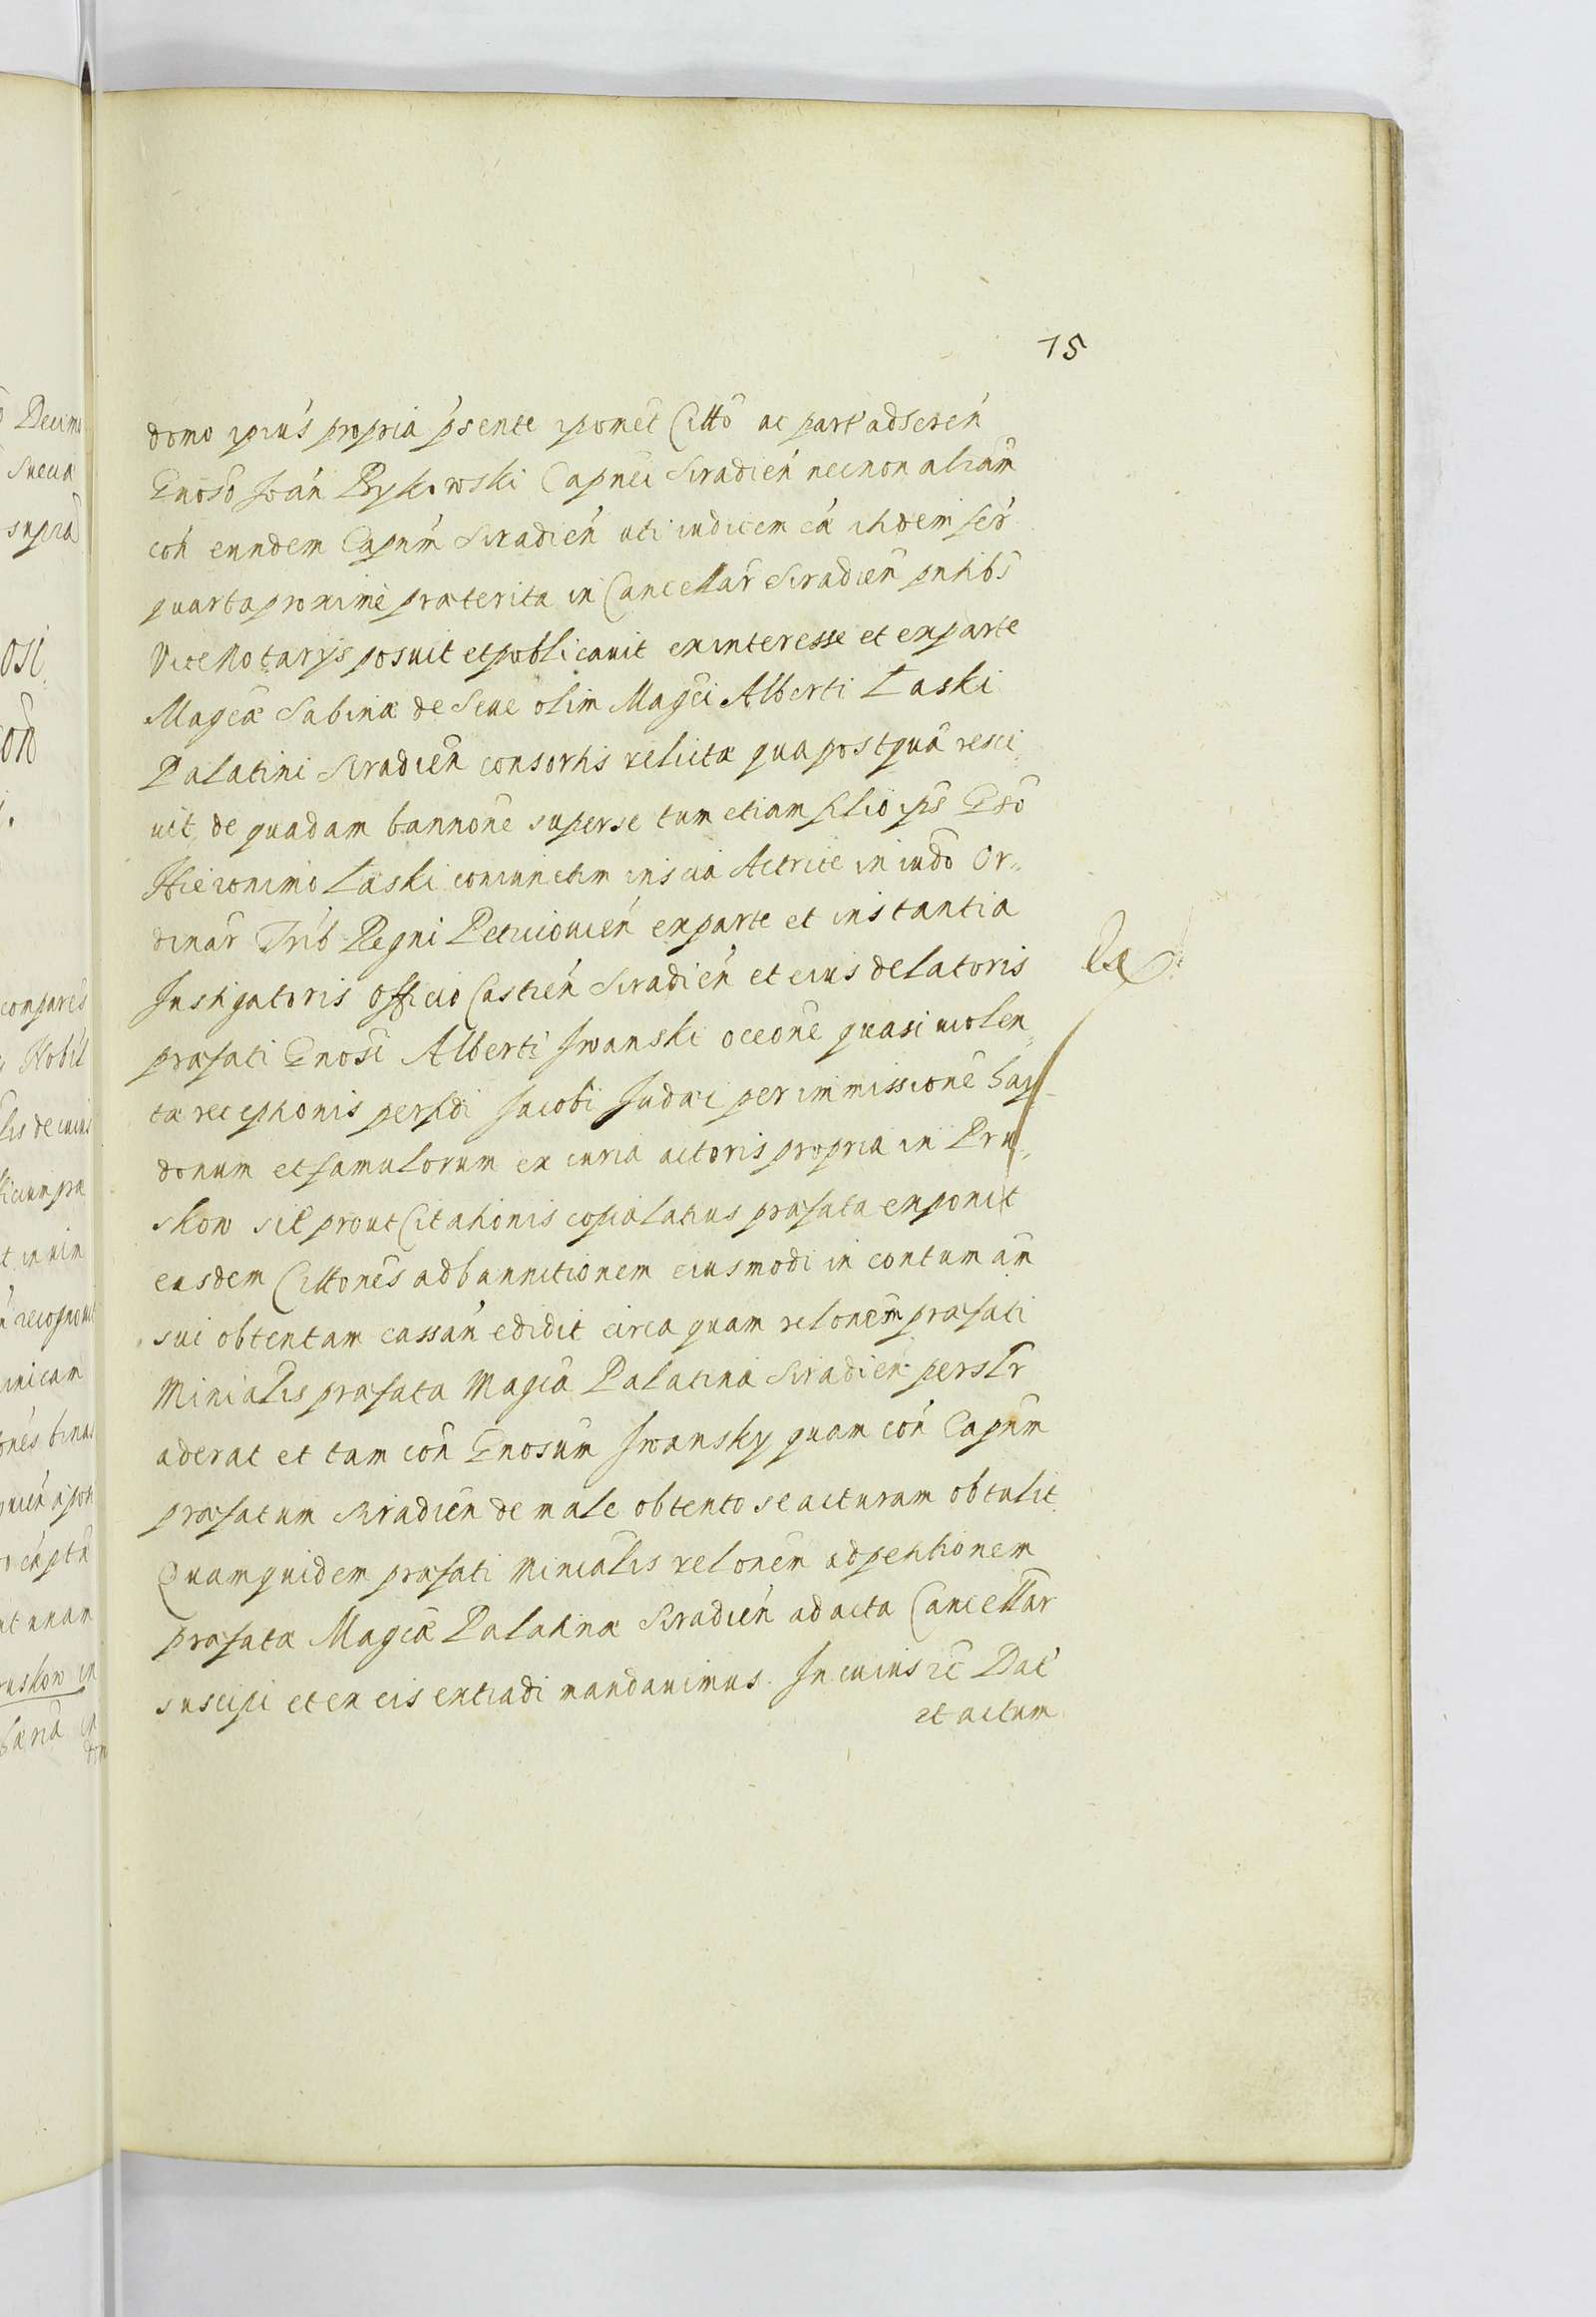 15
domo ipius propria psente ipomet Citto ac part adseren
Gnoso Joan Bykowski Capneo Siradien necnon aliam
con eundem Capnm Siradien uti iudicem ea itidem fer
quarta proxime praeterita in Cancellar Siradien pntibs
Vicenotarys posuit et publicauit ex interesse et ex parte
Magcae Sabinae de Seue olim Magci Alberti Laski
Palatini Siradien consortis relictae qua postqua resci
uit de quadam bannone super se tum etiam filio ips Gso
Hieronimo Laski coniunctim inscia Actrice in iudo Or„
dinar Trib Regni Petricouien ex parte et instantia
Instigatoris Officio Castren Siradien et eius delatoris
prafati Gnosi Alberti Iwanski occone quasi violen„
tae receptionis perfidi Jacobi Judaei per immissione hay
donum et famulorum ex curia actoris propria in Pru„
skow sit prout Citationis copia latius prafata exponit
easdem Cittones ad bannitionem eiusmodi in contumam
sui obtentam cassan edidit circa quam relonem prafati
Minialis prafata Magca Palatina Siradien perslr
aderat et tam con Gnosum Iwansky quam con Capnm
prafatum Siradien de male obtento se acturam obtulit
Quamquidem prafati Minialis relonem ad petitionem
prafatae Magcae Palatinae Siradien ad acta Cancellar
suscipi et ex eis extradi mandauimus. In cuius rei Dat
et actum